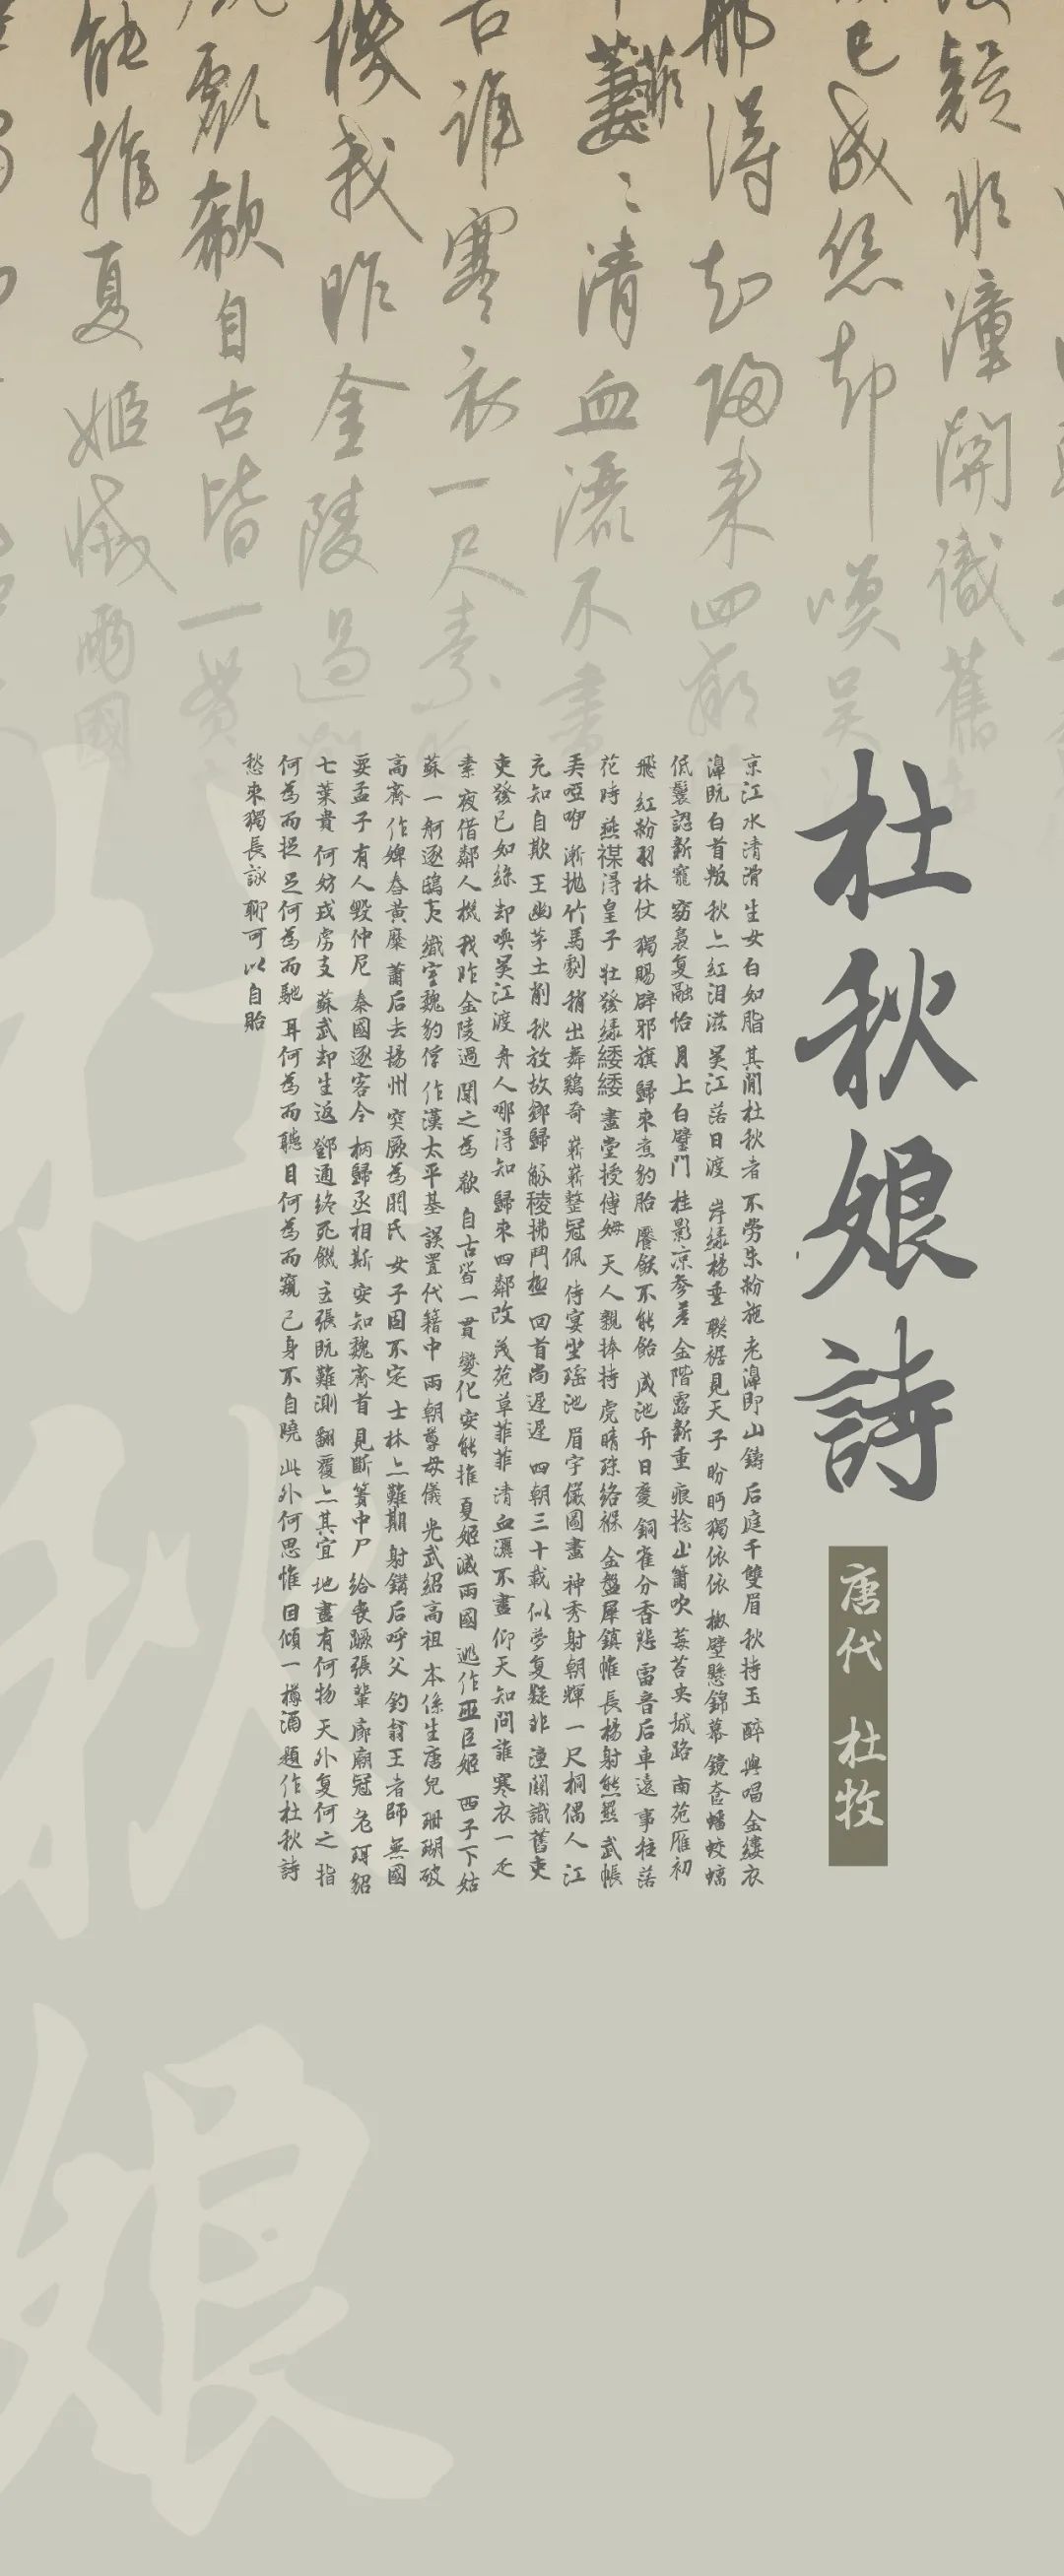 疑非潼關識舊
已成絲却喚吳
那得知歸來四鄰
萋菲
萋〻清血灑不盡
古誰寒衣一尺素
機我昨金陵過
歔欷自古皆一貫
能推夏姬滅兩國
杜秋娘詩
唐代 杜牧
京江水清滑 生女白如脂 其間杜秋者 不勞朱粉施 老濞即山鑄 后庭千雙眉 秋持玉 醉 與唱金縷衣
濞既白首叛 秋亠紅泪滋 吴江落日渡 岸緑楊垂 聯裾見天子 盼眄獨依依 椒壁懸錦幕 鏡奩蟠蛟螭
低鬟認新寵 窈裊复融怡 月上白璧門 桂影凉參差 金階露新重 痕捻山簫吹 莓苔夾城路 南苑雁初
飛 紅粉羽林仗 獨賜辟邪旗 歸來煮豹胎 饜飫不能飴 咸池升日慶 銅雀分香悲 雷音后車遠 事往落
花時 燕禖得皇子 壯發緑緌緌 畫堂授傅姆 天人親捧持 虎睛珠絡褓 金盤犀鎮帷 長楊射熊羆 武帳
弄啞咿 漸抛竹馬劇 稍出舞鷄奇 嶄嶄整冠佩 侍宴坐瑶池 眉宇儼圖畫 神秀射朝輝 一尺桐偶人 江
充知自欺 王幽茅土削 秋放故鄉歸 觚稜拂鬥極 回首尚遲遲 四朝三十載 似夢复疑非 潼關識舊吏
吏發已如絲 却喚吴江渡 舟人哪得知 歸來四鄰改 茂苑草菲菲 清血灑不盡 仰天知問誰 寒衣一疋
素 夜借鄰人機 我昨金陵過 聞之為 欷 自古皆一貫 變化安能推 夏姬滅兩國 逃作巫臣姬 西子下姑
蘇 一舸逐鴟夷 織室魏豹俘 作漢太平基 誤置代籍中 兩朝尊母儀 光武紹高祖 本係生唐兒 珊瑚破
高齊 作婢舂黄糜 蕭后去揚州 突厥為閼氏 女子固不定 士林亠難期 射鈎后呼父 釣翁王者師 無國
要孟子 有人毀仲尼 秦國逐客令 柄歸丞相斯 安知魏齊首 見斷簀中尸 給喪蹶張輩 廊廟冠 危 珥貂
七葉貴 何妨戎虜支 蘇武却生返 鄧通終死饑 主張既難測 翻覆亠其宜 地盡有何物 天外复何之 指
何為而捉 足何為而馳 耳何為而聽 目何為而窺 己身不自曉 此外何思惟 因傾一樽酒 題作杜秋詩
愁來獨長詠 聊可以自貽
杜秋娘